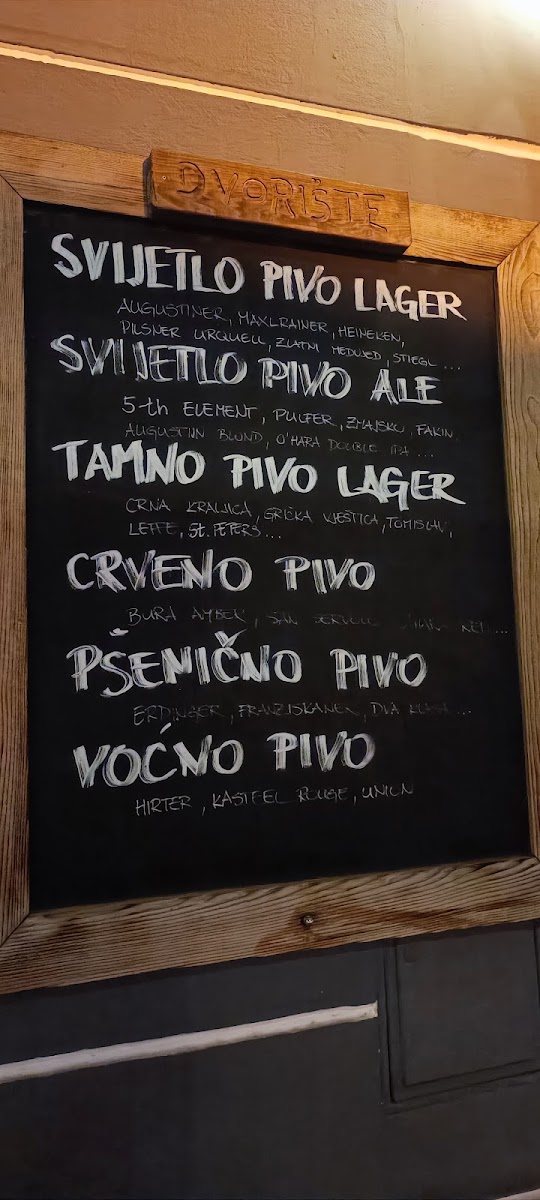 DVORIŠTE
SVIJETLO PIVO LAGER
AUGUSTINER, MAXLRAINER, HEINEKEN,
PILSNER URQUELL, ZLATNI MEDVJED, STIEGL ...
SVIJETLO PIVO ALE
5-th ELEMENT, PULFER, ZMAJSKO, FAKIN
AUGUSTIJN BLOND, O'HARA DOUBLE IPA ...
TAMNO PIVO LAGER
CRNA KRALJICA, GRIČKA VJEŠTICA, TOMISLAV,
LEFFE, St. PETERS ...
CRVENO PIVO
BURA AMBER, SAN SERVOLO ...
PŠENIČNO PIVO
ERDINGER, FRANZISKANER, DVA KLASA ...
VOĆNO PIVO
HIRTER, KASTEEL ROUGE, UNION